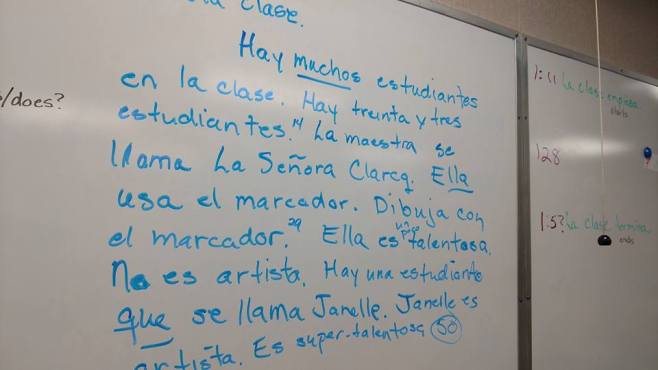 la clase.
Hay muchos estudiantes
en la clase. Hay treinta y tres
estudiantes.14 La maestra se
llama La Señora Clarcq. Ella
usa el marcador. Dibuja con
el marcador.29 Ella es un poco talentosa.
No es artista. Hay una estudiante
que se llama Janelle. Janelle es
artista. Es super-talentosa 50
/does?
1:11 La clase empieza
starts
128
1:5? La clase termina
ends